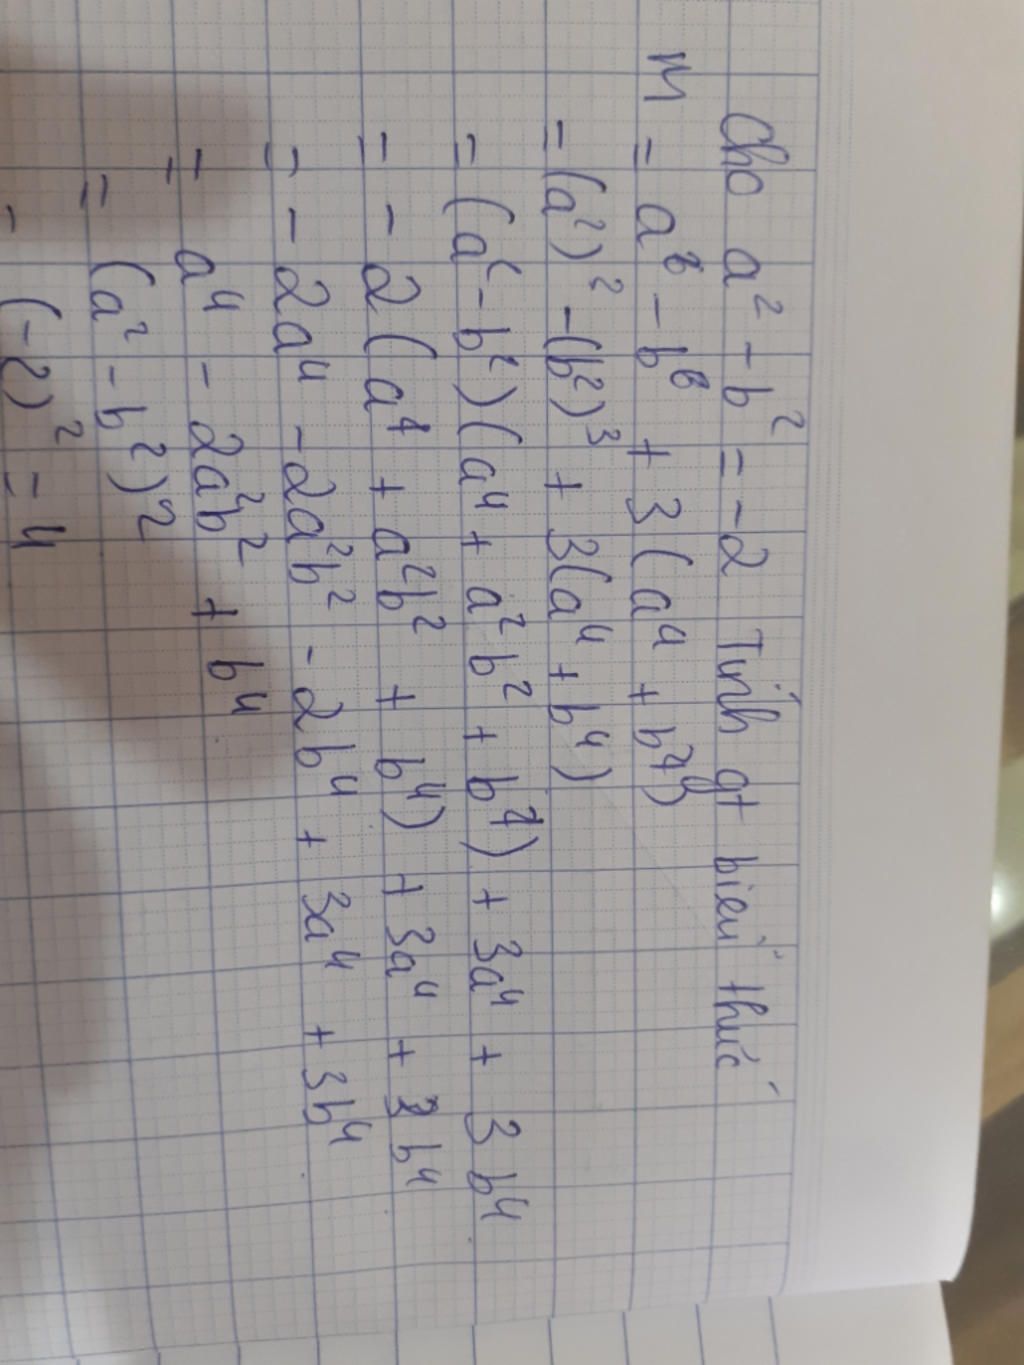 Cho a² - b² = -2 Tính gt biểu thức
M = a⁶ - b⁶ + 3(a⁴ + b⁴)
= (a²)² - (b²)³ + 3(a⁴ + b⁴)
= (a² - b²)(a⁴ + a²b² + b⁴) + 3a⁴ + 3b⁴
= -2(a⁴ + a²b² + b⁴) + 3a⁴ + 3b⁴
= -2a⁴ - 2a²b² - 2b⁴ + 3a⁴ + 3b⁴
= a⁴ - 2a²b² + b⁴
= (a² - b²)2
= (-2)² = 4